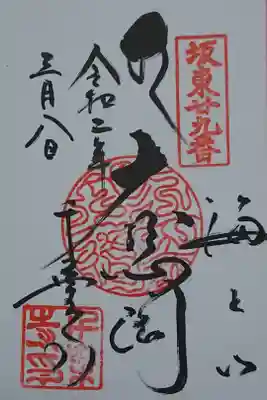 坂東廿九番
海上山
大悲
令和二年
千葉寺
三月八日